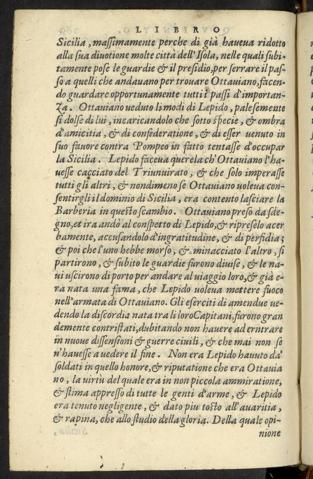 LIBRO
Sicilia, massimamente perche di già haueua ridotto
alla sua diuotione molte città dell'Isola, nelle quali subi-
tamente pose le guardie & il presidio, per serrare il pas-
so a quelli che andauano per trouare Ottauiano, facen-
do guardare opportunamente tutti i passi d'importan-
za. Ottauiano veduto li modi di Lepido, palesemente
si dolse di lui, incaricandolo che sotto spécie, & ombra
d'amicitia, & di confederatione, & di esser venuto in
suo fauore contra Pompeo in fatto tentasse d'occupar
la Sicilia. Lepido faceua querela ch'Ottauiano l'ha-
uesse cacciato del Triunuirato, & che solo imperasse
tutti gli altri, & nondimeno se Ottauiano voleua con-
sentirgli il dominio di Sicilia, era contento lasciare la
Barberia in questo scambio. Ottauiano preso da sde-
gno, et ira andò al conspetto di Lepido, & ripreselo acer
bamente, accusandolo d'ingratitudine, & di perfidia;
& poi che l'uno hebbe morso, & minacciato l'altro, si
partirono, & subito le guardie furono diuise, & le na-
ui uscirono di porto per andare al viaggio loro, & già e-
ra nata una fama, che Lepido voleua mettere fuoco
nell'armata di Ottauiano. Gli eserciti di amendue ve-
dendo la discordia nata tra li loro Capitani, furono gran
demente contristati, dubitando non hauere ad entrare
in nuoue dissensioni & guerre ciuili, & che mai non se
n'hauesse a vedere il fine. Non era Lepido hauuto da'
soldati in quello honore, & riputatione che era Ottauia
no, la uirtù del quale era in non piccola ammiratione,
& stima appresso di tutte le genti d'arme, & Lepido
era tenuto negligente, & dato piu tosto all'auaritia,
& rapina, che allo studio della gloria. Della quale opi-
nione